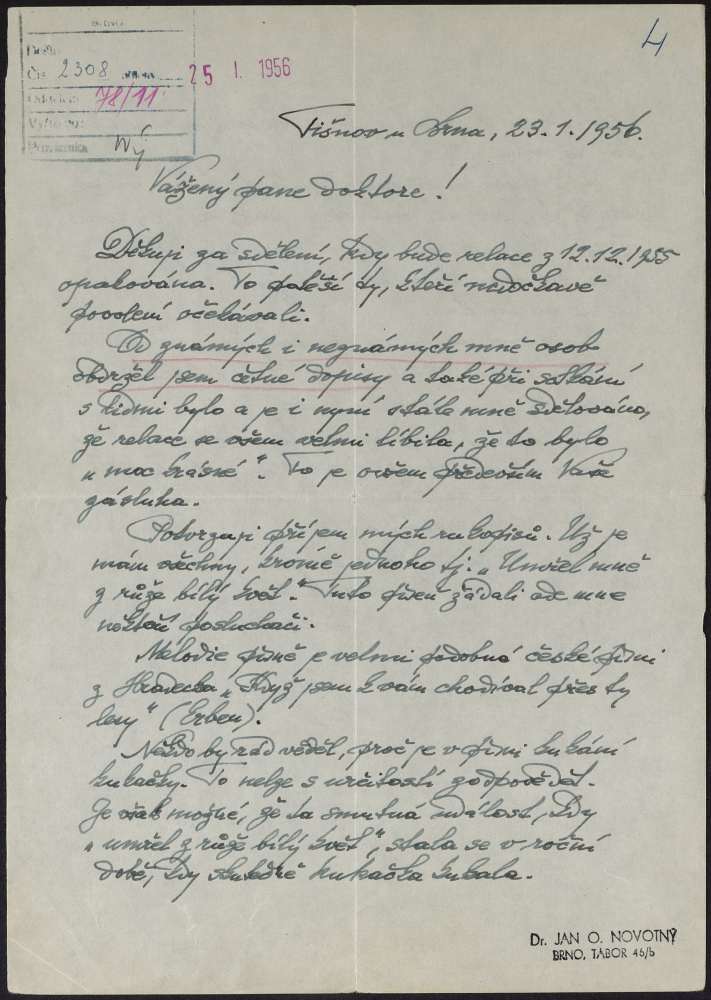 4
Došlo
Čís. 2308
25 I. 1956
78/11
Vý
Tišnov u Brna, 23.1.1956.
Vážený pane doktore!
Děkuji za sdělení, kdy bude relace z 12.12.1955
opakována. To potěší ty, kteří nedočkavě
povolení očekávali.
Od známých i neznámých mně osob
obdržel jsem četné dopisy a také při setkání
s lidmi bylo a je i nyní stále mně sdělováno,
že relace se všem velmi líbila, že to bylo
„moc krásné". To je ovšem především Vaše
zásluha.
Potvrzuji příjem mých rukopisů. Už je
mám všechny, kromě jednoho tj. „Umřel mně
z růže bílý květ." Tuto píseň žádali ode mne
někteří posluchači.
Melodie písně je velmi podobná české písni
z Hradecka „Když jsem k vám chodíval přes ty
lesy" (Erben).
Někdo by rád věděl, proč je v písni kukání
kukačky. To nelze s určitostí zodpovědět.
Je však možné, že ta smutná událost, kdy
„umřel z růže bílý květ", stala se v roční
době, kdy skutečně kukačka kukala.
Dr. JAN O. NOVOTNÝ
BRNO, TÁBOR 46/b